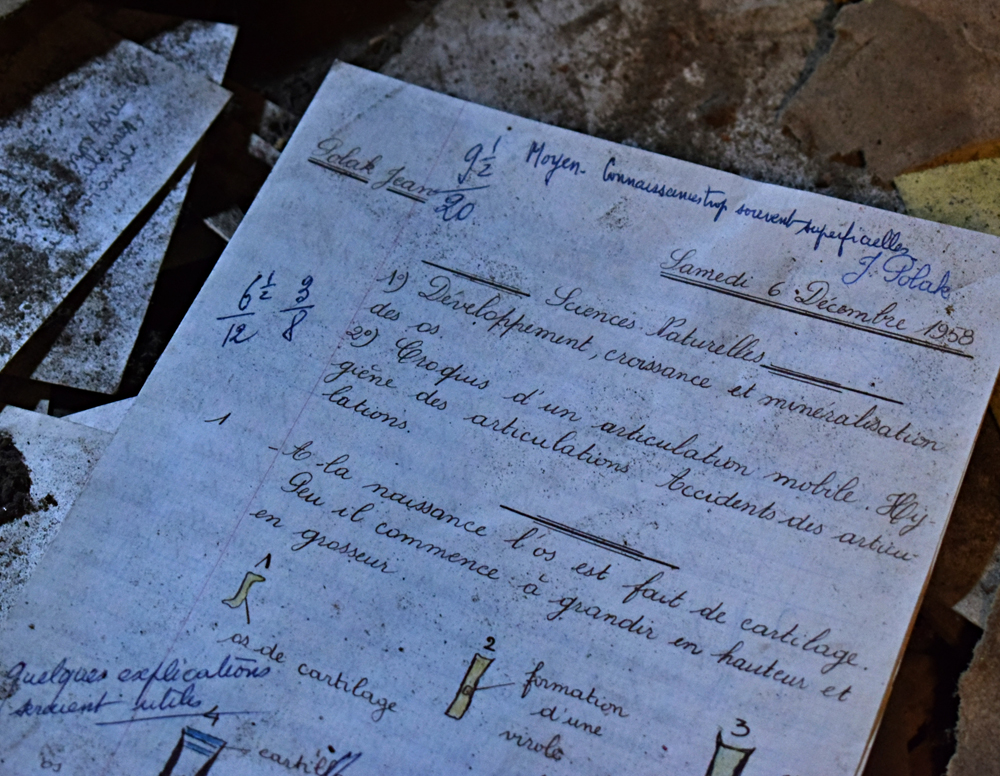 Polak Jean
9 1/2
20
Moyen. Connaissances trop souvent superficielles
J. Polak
Samedi 6 Décembre 1958
6 1/2
12
3
8
Sciences Naturelles
1°) Développement, croissance et minéralisation
des os
2°) Croquis d'un articulation mobile. Hy-
giène des articulations. Accidents des articu-
lations.
1
- A la naissance l'os est fait de cartilage.
Peu il commence à grandir en hauteur et
en grosseur.
1
os de cartilage
2
formation
d'une
virole
3
Quelques explications
seraient utiles
4
os